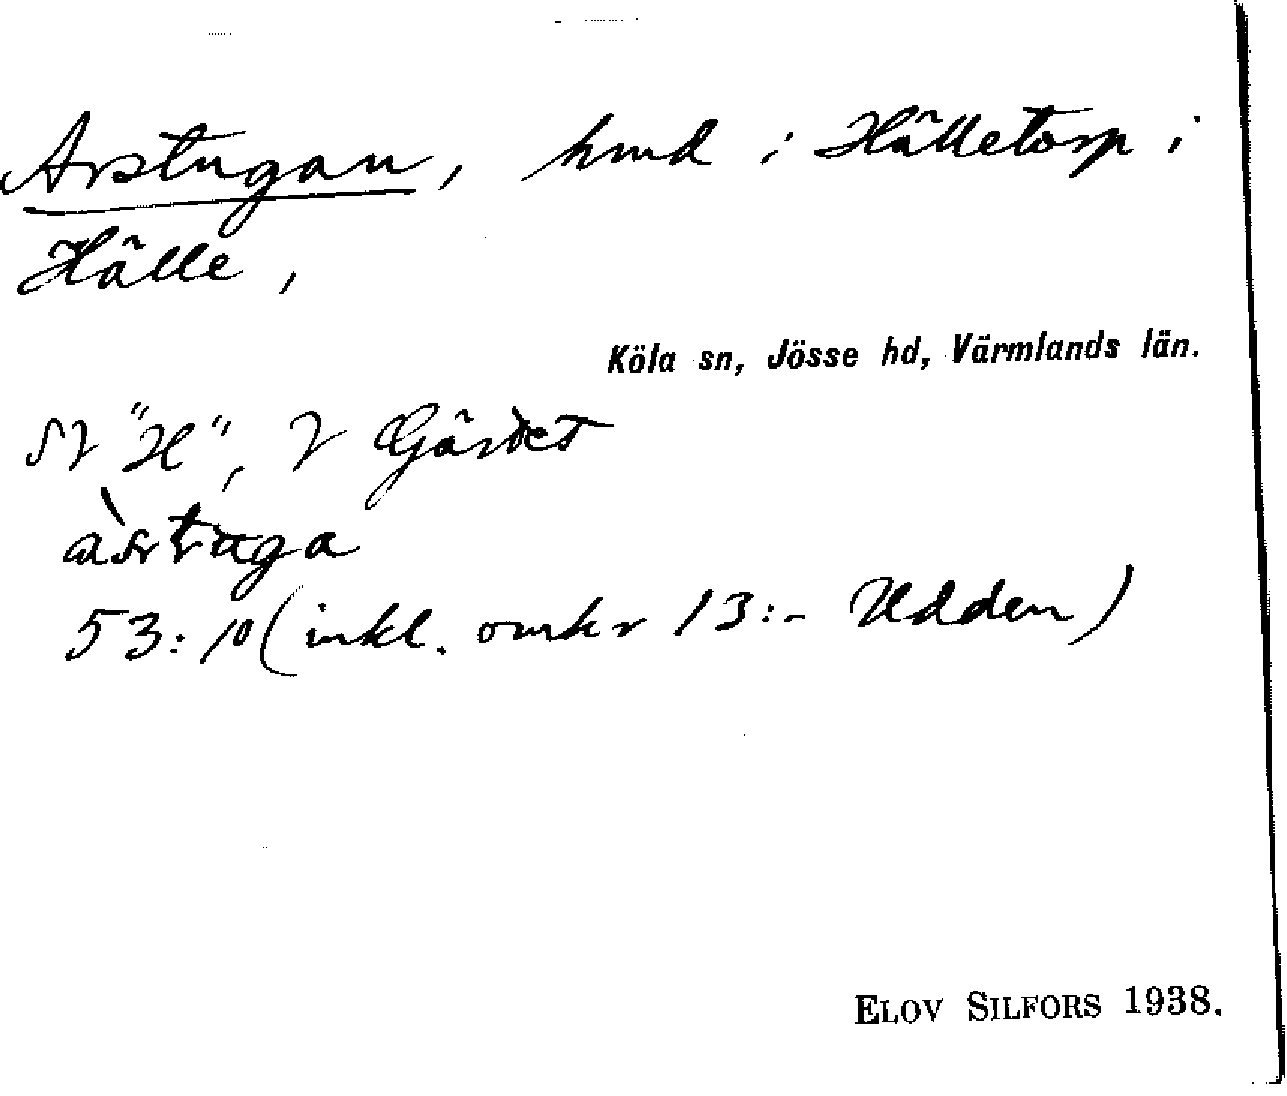 Arstugan, hmd i Hälletorp i
Hälle,
Köla sn, Jösse hd, Värmlands län.
SV "H", V Gärdet
àstuga
53:10 (inkl. omkr 13:- Udden)
ELOV SILFORS 1938.